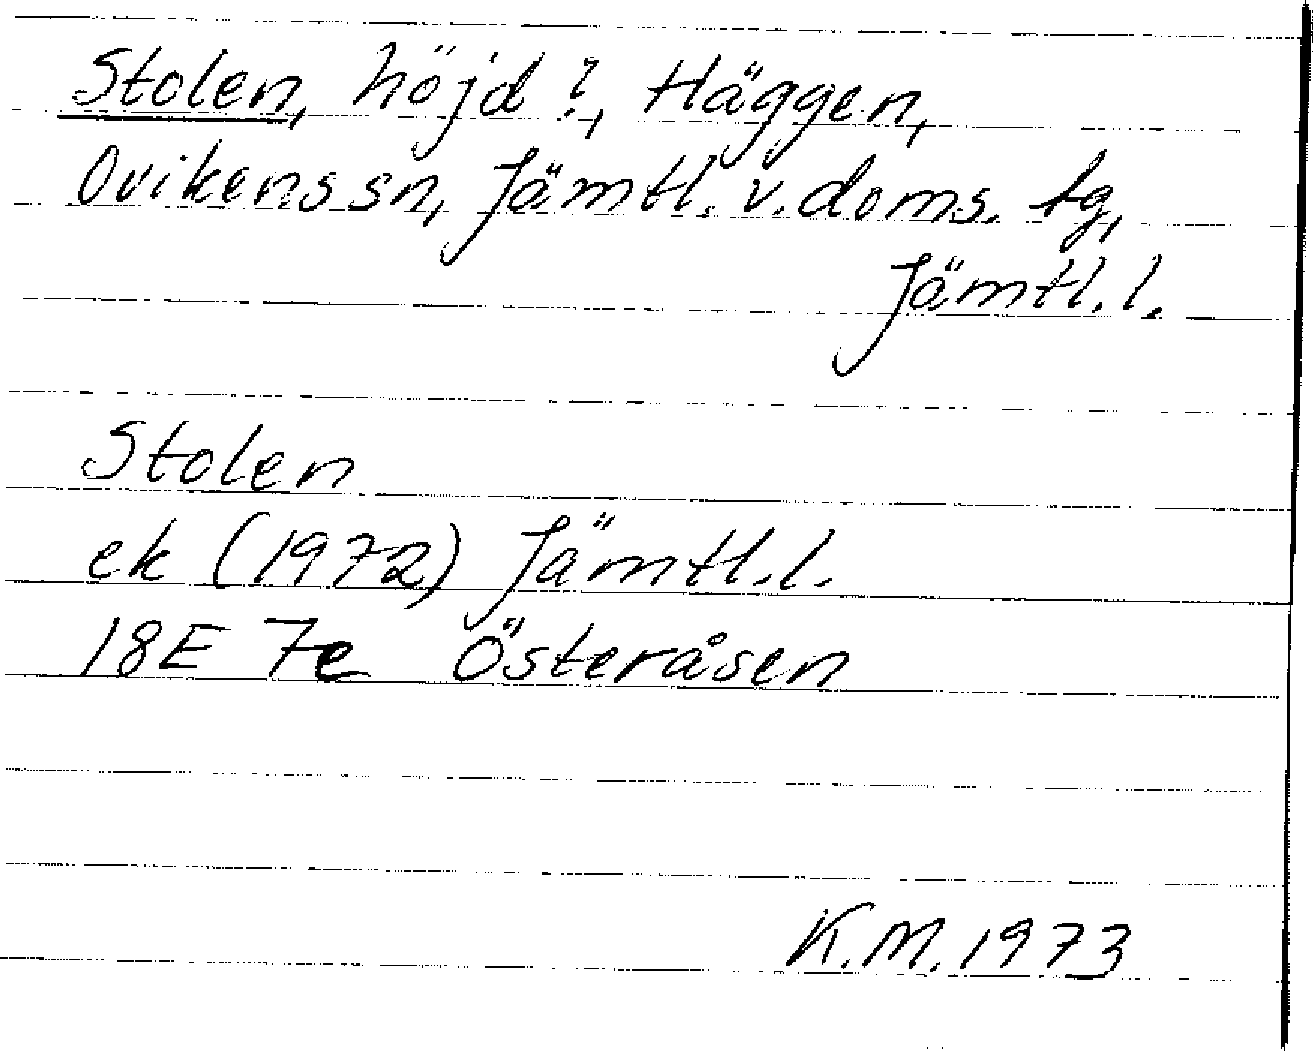 Stolen, höjd?, Häggen,
Ovikens sn, Jämtl. v. doms. tg,
Jämtl. l.
Stolen
ek (1972) Jämtl. l.
18E 7e Österåsen
K.M. 1973